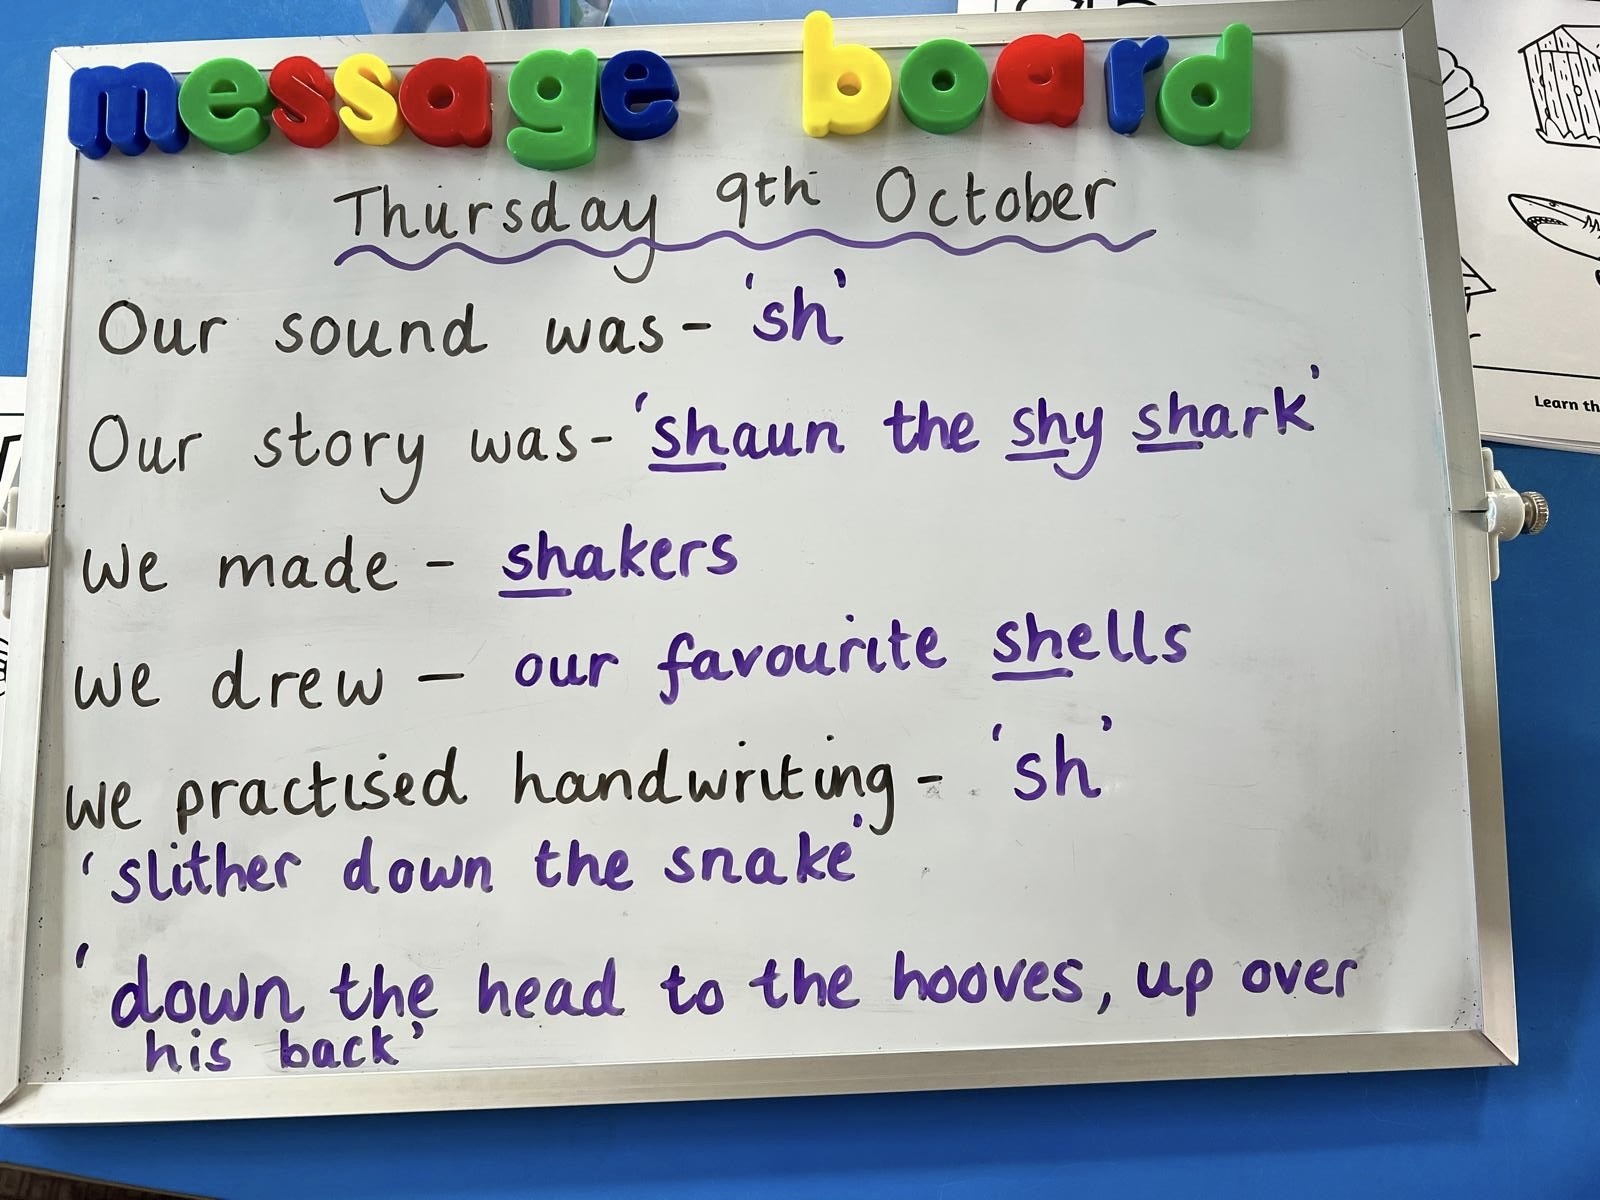 message board
Thursday 9th October
Our sound was - 'sh'
Our story was - 'shaun the shy shark'
we made - shakers
we drew - our favourite shells
we practised handwriting - 'sh'
'slither down the snake'
'down the head to the hooves, up over
his back'
Learn th